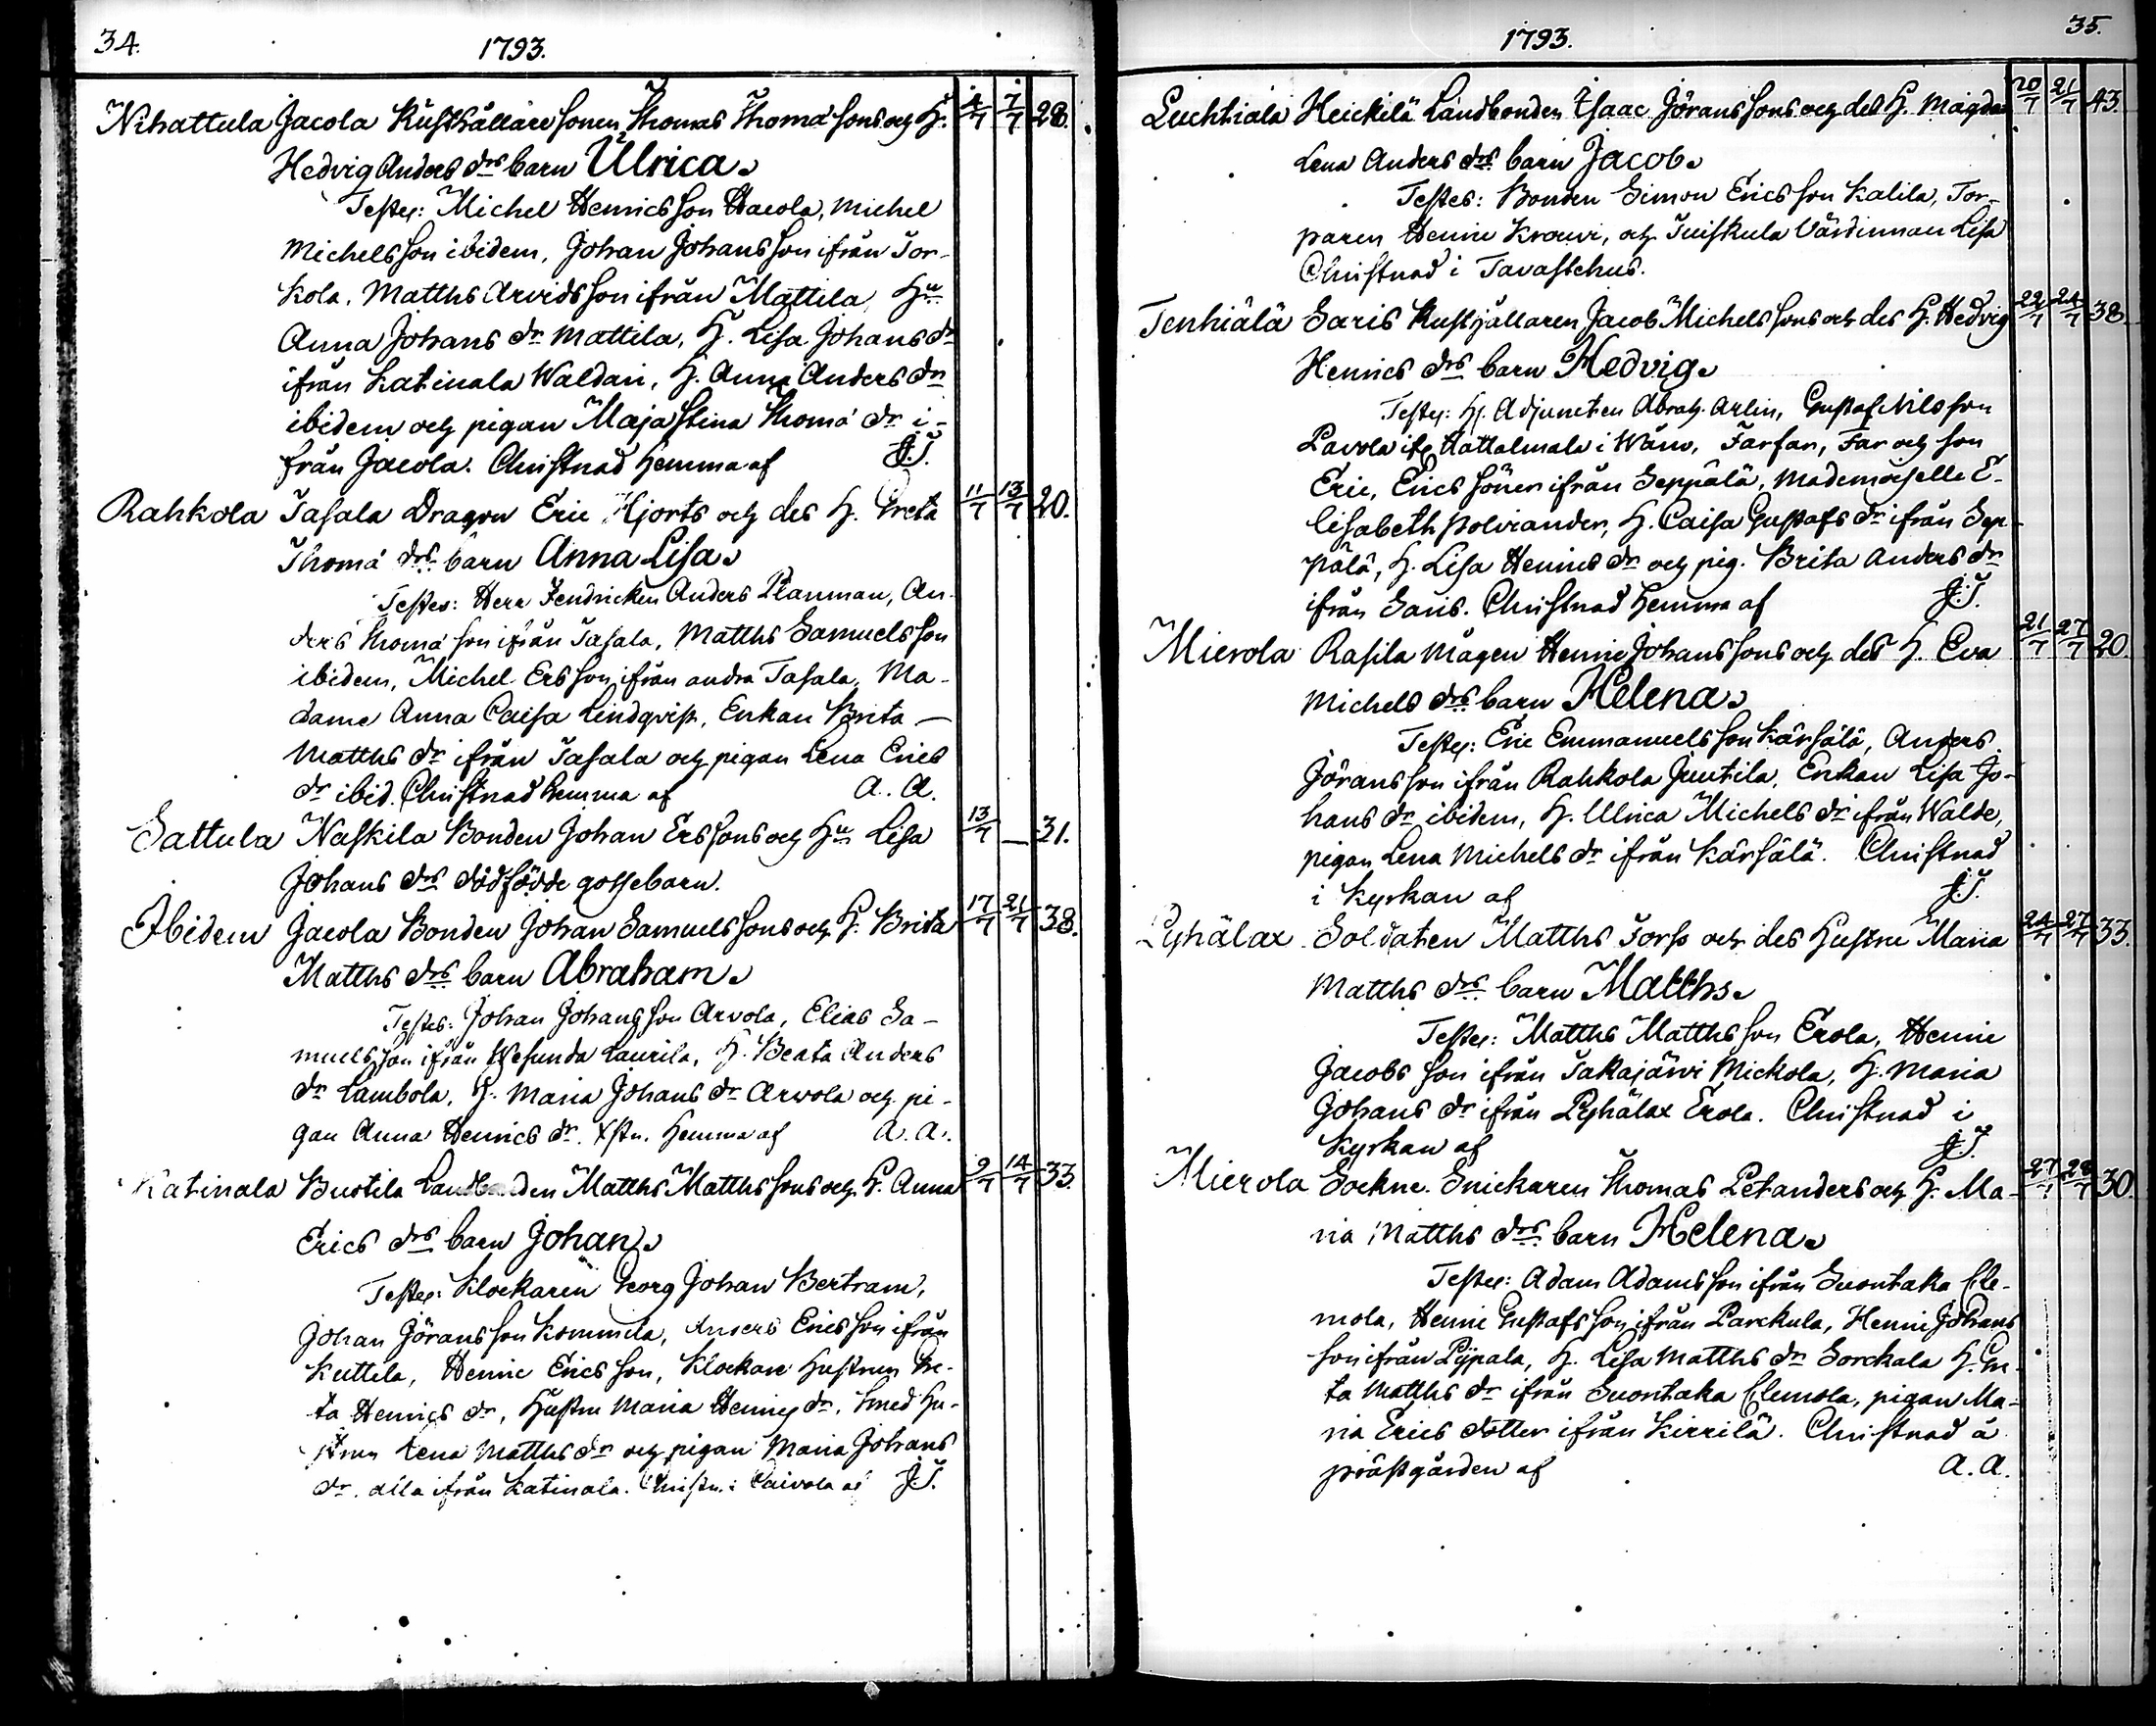 34.
1793.
Nihattula Jacola Rusthållare sonen Thomas Thomæ sons och H. 4/7 7/7 28.
Hedvig Anders drs barn Ulrica.
Testes: Michel Henricsson Jacola, Michel
Michelsson ibidem, Johan Johansson ifrån Tor-
kola, Matths Arvidsson ifrån Mattila, Hu
Anna Johans dr Mattila, H. Lisa Johans dr
ifrån Katinala Waldari, H. Anna Anders dr
ibidem och pigan Maja Stina Thomæ dr i-
från Jacola. Christnad hemma af J.T.
Rahkola Tasala Dragon Eric Hjorts och des H. Greta 11/7 13/7 20.
Thomæ drs barn Anna Lisa.
Testes: Herr Fendricken Anders Planman, An-
ders Thomæ son ifrån Tasala, Matths Samuelsson
ibidem, Michel Ersson ifrån andra Tasala, Ma-
dame Anna Caisa Lindqvist, Enkan Brita
Matths dr ifrån Tasala och pigan Lena Erics
dr ibid. Christnad hemma af A. A.
Sattula Naskila Bonden Johan Erssons och Hu Lisa 13/7 — 31.
Johans drs dödfödde gossebarn.
Ibidem Jacola Bonden Johan Samuelssons och H. Brita 17/7 21/7 38.
Matths drs barn Abraham.
Testes: Johan Johansson Arvola, Elias Sa-
muelsson ifrån Wesunda Laurila, H. Beata Anders
dr Lambola, H. Maria Johans dr Arvola och pi-
gan Anna Henrics dr. Xstn. hemma af A. A.
Katinala Bustila Landbonden Matths Matthssons och H. Anna 9/7 14/7 33.
Erics drs barn Johan.
Testes: Klockaren Georg Johan Bertram,
Johan Göransson Kommila, Anders Ericsson ifrån
Kuttila, Henric Ericsson, Klockare hustrun Gre-
ta Henrics dr, Hustru Maria Henrics dr, Smed hu-
strun Lena Matths dr och pigan Maria Johans
dr. alla ifrån Katinala. Christn. i Paivola af J.T.
35.
1793.
Luchtiala Heickilä Landbonden Isaac Göranssons och des H. Magda 20/7 21/7 43.
Lena Anders drs barn Jacob.
Testes: Bonden Simon Ericsson Kalila, Tor-
paren Henric Krouvi, och Tuiskula Värdinnan Lisa
Christnad i Tavastehus.
Tenhiälä Saris Rusthållaren Jacob Michelssons och des H. Hedvig 22/7 24/7 38
Henrics drs barn Hedvig.
Testes: H. Adjuncten Abrah. Arlin, Gustaf Nilsson
Pavola ifr. Hattalmala i Wåno, Farfar, Far och son
Eric, Erics söner ifrån Seppälä, Mademoiselle E-
lisabeth Polviander, H. Caisa Gustafs dr ifrån Sep-
pälä, H. Lisa Henrics dr och pig. Brita Anders dr
ifrån Saris. Christnad hemma af J.T.
Mierola Rasila Mågen Henric Johanssons och des H. Eva 21/7 27/7 20.
Michels drs barn Helena.
Testes: Eric Emmanuelsson Kärsälä, Anders
Göransson ifrån Rahkola Juutila, Enkan Lisa Jo-
hans dr ibidem, H. Ulrica Michels dr ifrån Walde,
pigan Lena Michels dr ifrån Kärsälä. Christnad
i kyrkan af J.T.
Pyhälax Soldaten Matths Forss och des hustru Maria 24/7 27/7 33.
Matths drs barn Matths.
Testes: Matths Matthsson Erola, Henric
Jacobs son ifrån Takajärvi Mickola, H. Maria
Johans dr ifrån Pyhälax Erola. Christnad i
kyrkan af J.T.
Mierola Sockne Snickaren Thomas Petanders och H. Ma- 27/7 28/7 30.
ria Matths drs barn Helena.
Testes: Adam Adamsson ifrån Suontaka Cle-
mola, Henric Gustafsson ifrån Parckula, Henric Johans
son ifrån Pijpala, H. Lisa Matths dr Sorckala H. Gre-
ta Matths dr ifrån Suontaka Clemola, pigan Ma-
ria Erics dotter ifrån Kirrilä. Christnad å
prästgården af A. A.